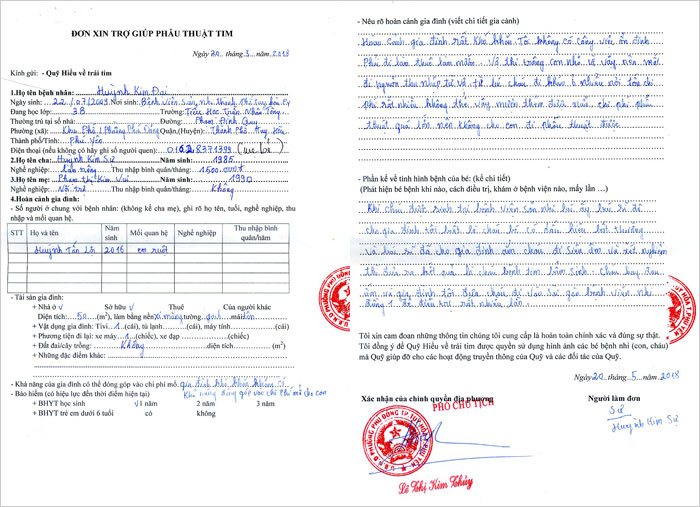 ĐƠN XIN TRỢ GIÚP PHẪU THUẬT TIM
Ngày 20 tháng 5 năm 2018
Kính gửi: - Quỹ Hiểu về trái tim
1.Họ tên bệnh nhân: Huỳnh Kim Đại
Ngày sinh: 22/07/2009 Nơi sinh: Bệnh Viện Sản, Nhi
Đang học lớp: 3B Trường: Tiểu Học Trần Nhân Tông
Thường trú tại số nhà: Đường: Phạm Đình Quy
Phường (xã): Khu Phố 1 Phường Phú Đông Quận,(Huyện): Thành Phố Tuy Hòa
Thành phố/Tỉnh: Phú Yên
Điện thoại (nếu không có hãy ghi số người quen):
2.Họ tên cha: Huỳnh Kim Sử Năm sinh: 1985
Nghề nghiệp: Thu nhập bình quân/tháng: 1500.000đ
3.Họ tên mẹ: Phạm Thị Kim Vui Năm sinh: 1990
Nghề nghiệp: Nội trợ Thu nhập bình quân/tháng: Không
4.Hoàn cảnh gia đình:
- Số người ở chung với bệnh nhân: (không kể cha mẹ), ghi rõ họ tên, tuổi, nghề nghiệp, thu
nhập và mối quan hệ.
STT Họ và tên Năm sinh Mối quan hệ Nghề nghiệp Thu nhập bình quân/năm
Huỳnh Tấn Lợi 2016 em ruột
- Tài sản gia đình:
+ Nhà ở √ Sở hữu √ Thuê Của người khác
Diện tích: 50 (m²), làm bằng nền xi măng tường gạch mái tôn
+ Vật dụng gia đình: Tivi 1 (cái), tủ lạnh (cái), máy tính (cái)
+ Phương tiện đi lại: xe máy 1 (chiếc), xe đạp (chiếc)
+ Đất đai/cây trồng: Không diện tích (m²)
+ Những đặc điểm khác:
- Khả năng của gia đình có thể đóng góp vào chi phí mổ: gia đình khó khăn không có
Khả năng đóng góp vào chi phí mổ cho con
- Bảo hiểm (có hiệu lực đến thời điểm hiện tại)
+ BHYT học sinh √1 năm 2 năm 3 năm
+ BHYT trẻ em dưới 6 tuổi có không
- Nêu rõ hoàn cảnh gia đình (viết chi tiết gia cảnh)
Hoàn cảnh gia đình rất khó khăn. Tôi không có công việc ổn định
Phải đi làm thuê làm mướn. Vợ thì trông con nhỏ vì vậy nên mất
đi nguồn thu nhập từ vợ
phí rất nhiều không thể vay mượn thêm được nữa chi phí phẫu
thuật quá lớn nên không cho con đi phẫu thuật được.
- Phần kể về tình hình bệnh của bé: (kể chi tiết)
(Phát hiện bé bệnh khi nào, cách điều trị, khám ở bệnh viện nào, mấy lần …)
Khi cháu được sinh tại bệnh viện sản nhi
cho gia đình tôi biết là cháu bé có dấu hiệu bất thường
và cho gia đình ẵm cháu đi siêu âm và xét nghiệm
thì đưa ra kết quả là cháu bệnh tim bẩm sinh
và gia đình tôi đưa cháu đi vào Sài Gòn bệnh viện nhi
đồng 1 để điều trị rất nhiều lần.
Tôi xin cam đoan những thông tin chúng tôi cung cấp là hoàn toàn chính xác và đúng sự thật.
Tôi đồng ý để Quỹ Hiểu về trái tim được quyền sử dụng hình ảnh các bé bệnh nhi (con, cháu)
mà Quỹ giúp đỡ cho các hoạt động truyền thông của Quỹ và các đối tác của Quỹ.
Ngày 20 tháng 5 năm 2018
Xác nhận của chính quyền địa phương
Người làm đơn
PHÓ CHỦ TỊCH
Sử
Huỳnh Kim Sử
U.B.N.D PHƯỜNG PHÚ ĐÔNG TP TUY HÒA T. PHÚ YÊN
Lê Thị Kim Thủy